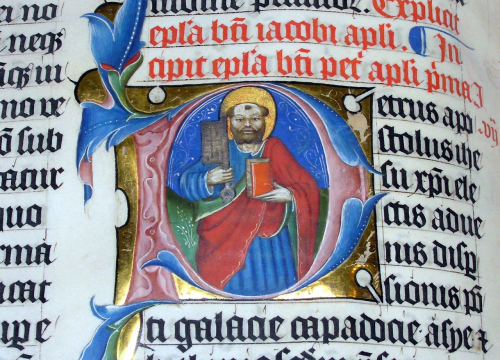 ei no
neqz
more
õ sub
quo
rma
Explicit
epl̃a bt̃i iacobi apl̃i. In
cipit epl̃a bt̃i pet̃ apl̃i p̃ma I
Petrus apo
stolus ihe
su xp̃i ele
ctis adue
nis disp̱
sionis põ
ti galacie capadocie asye ⁊